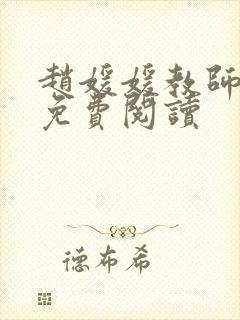 趙媛媛教師
免費閱讀
德布希